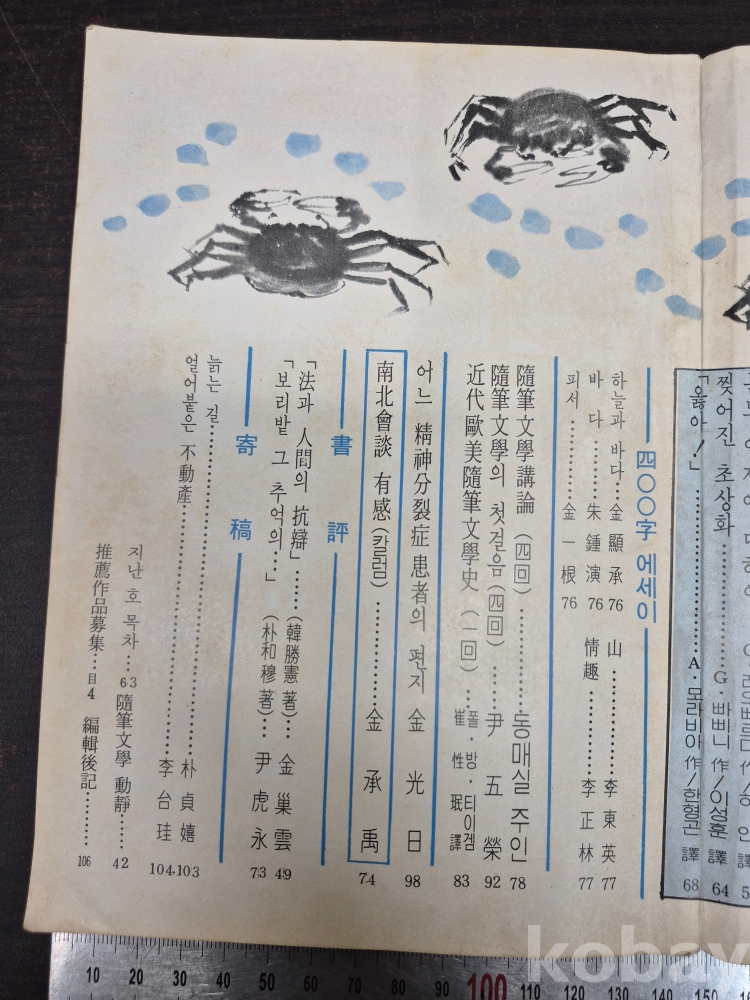 찢어진 초상화 …… G·빠삐니 作/이성훈 譯 64
「옳아!」 …… A·모라비아 作/한형곤 譯 68
四〇〇字 에세이
하늘과 바다 … 金顯承 76 山 …… 李東英 77
바다 …… 朱鍾演 76 情趣 …… 李正林 77
피서 …… 金一根 76
隨筆文學講論 (四回) …… 동매실 주인 78
隨筆文學의 첫걸음 (四回) …… 尹五榮 92
近代歐美隨筆文學史 (一回) … 폴·방·티이겜 崔性珉 譯 83
어느 精神分裂症 患者의 편지 金光日 98
南北會談 有感 (칼럼) …… 金承禹 74
書評
「法과 人間의 抗辯」 …… (韓勝憲 著) … 金巢雲 49
「보리밭 그 추억의…」 (朴和穆 著) … 尹虎永 73
寄稿
늙는 길 …… 朴貞嬉 103
얼어붙은 不動產 …… 李台珪 104
지난 호 목차 … 63 隨筆文學 動靜 …… 42
推薦作品募集 … 目4 編輯後記 …… 106
10 20 30 40 50 60 70 80 90 100 110 120 130 140 150
kobay